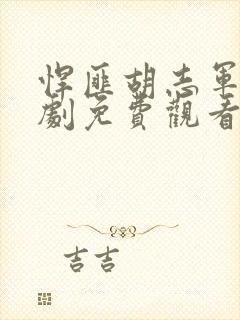 悍匪胡志軍
劇免費觀看
吉吉